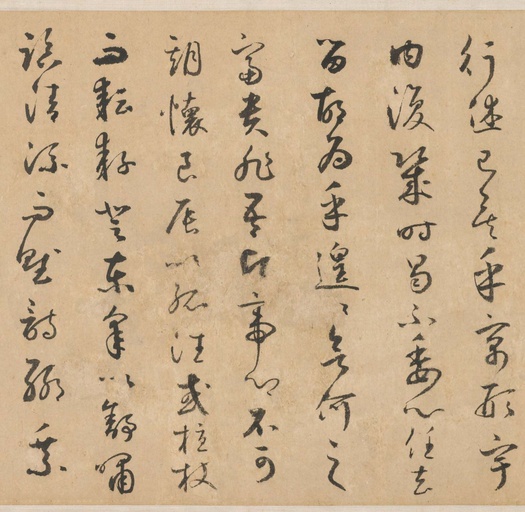 行休已矣乎寓形宇
内復幾時曷不委心任去
留胡為乎遑〻何之
富貴非吾願帝鄉不可
期懷良辰以孤往或植杖
而耘耔登東皋以舒嘯
臨清流而賦詩聊乘